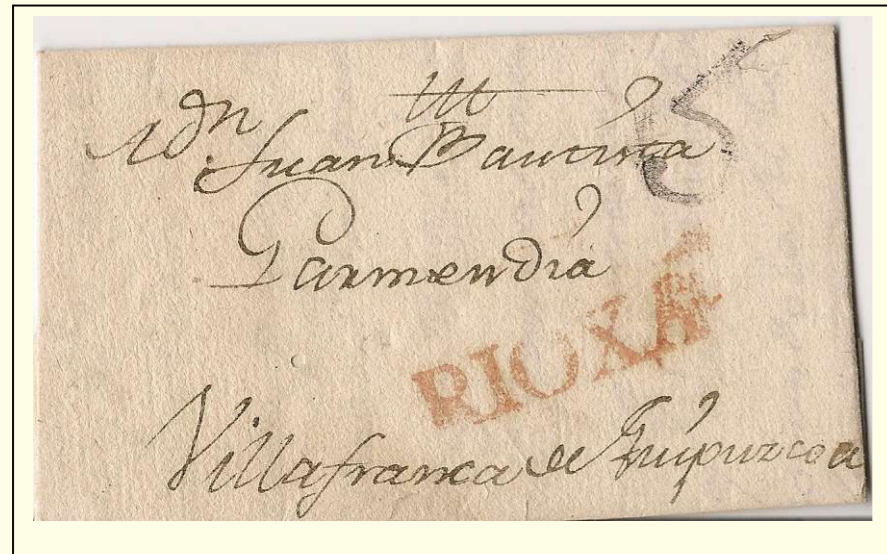 A dn Juan Bautista
5
Garmendia
RIOXA
Villafranca de Guipuzcoa